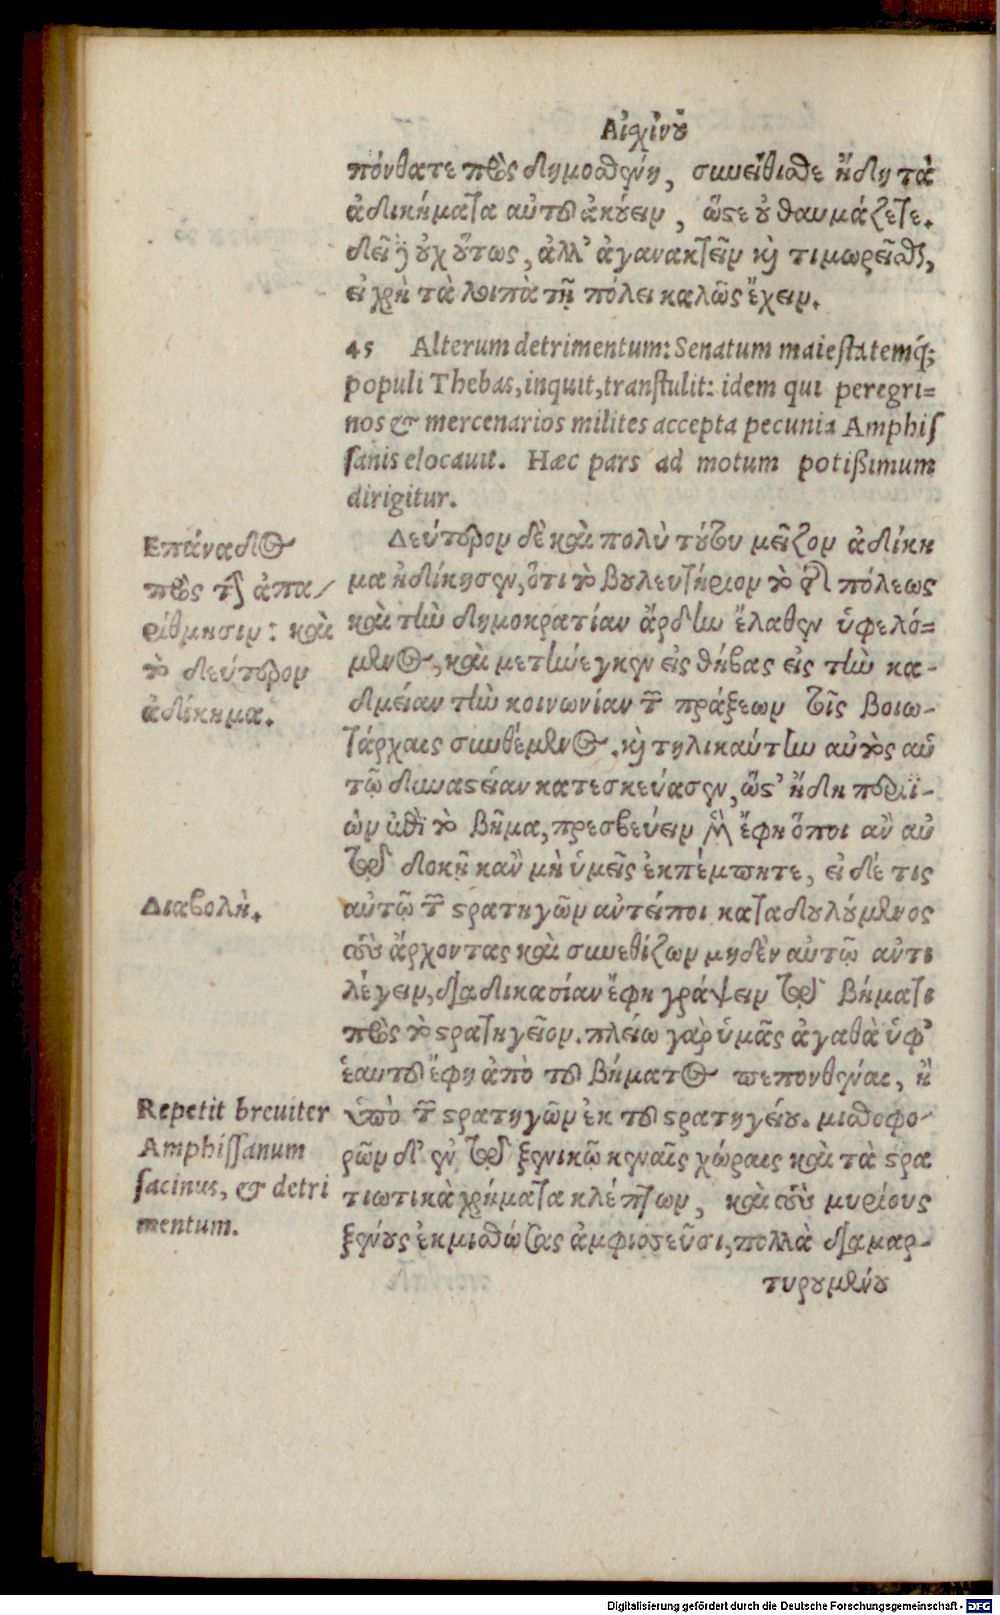 Αἰχίνου
πόνθατε πρὸς δημοσθένη, συνείθισθε ἤδη τὰ
ἀδικήματα αὐτοῦ ἀκούειν, ὥστε οὐ θαυμάζετε.
δεῖ ϳ οὐχ οὕτως, ἀλλ' ἀγανακτεῖν καὶ τιμωρεῖσθαι,
εἰ χρὴ τὰ λοιπὰ τῇ πόλει καλῶς ἔχειν.
45 Alterum detrimentum: Senatum maiestatemq́;
populi Thebas, inquit, transtulit: idem qui peregri=
nos & mercenarios milites accepta pecunia Amphis
sanis elocauit. Hæc pars ad motum potißimum
dirigitur.
Επάνοδος
πρὸς τὴν ἀπα/
ρίθμησιν: καὶ
τὸ δεύτερον
ἀδίκημα.
Δεύτερον δὲ καὶ πολὺ τούτου μεῖζον ἀδίκη
μα ἠδίκησεν, ὅτι τὸ βουλευτήριον τὸ τῆς πόλεως
καὶ τὴν δημοκρατίαν ἄρδην ἔλαθεν ὑφελό=
μενος, καὶ μετήνεγκεν εἰς θήβας εἰς τὴν κα-
δμείαν τὴν κοινωνίαν τῶν πράξεων τοῖς βοιω-
τάρχαις συνθέμενος. καὶ τηλικαύτην αὐτὸς αὑ
τῷ δυναστείαν κατεσκεύασεν, ὥστ' ἤδη παρϊ-
ὼν ἐπὶ τὸ βῆμα, πρεσβεύειν μὲν ἔφη ὅποι ἂν αὐ
τῷ δοκῇ κἂν μὴ ὑμεῖς ἐκπέμπητε, εἰ δέ τις
Διαβολὴ.
αὐτῷ τῶν στρατηγῶν ἀντείποι καταδουλούμενος
τοὺς ἄρχοντας καὶ συνεθίζων μηδὲν αὐτῷ ἀντι
λέγειν, διαδικασίαν ἔφη γράψειν τῷ βήματι
πρὸς τὸ στρατηγεῖον. πλείω γὰρ ὑμᾶς ἀγαθὰ ὑφ'
ἑαυτοῦ ἔφη ἀπὸ τοῦ βήματος πεπονθέναι, ἢ
Repetit breuiter
Amphissanum
facinus, & detri
mentum.
ὑπὸ τῶν στρατηγῶν ἐκ τοῦ στρατηγείου. μισθοφο-
ρῶν δ' ἐν τῷ ξενικῷ κεναῖς χώραις καὶ τὰ στρα
τιωτικὰ χρήματα κλέπτων, καὶ τοὺς μυρίους
ξένους ἐκμισθώσας ἀμφισσεῦσι, πολλὰ διαμαρ-
τυρουμένου
Digitalisierung gefördert durch die Deutsche Forschungsgemeinschaft - DFG